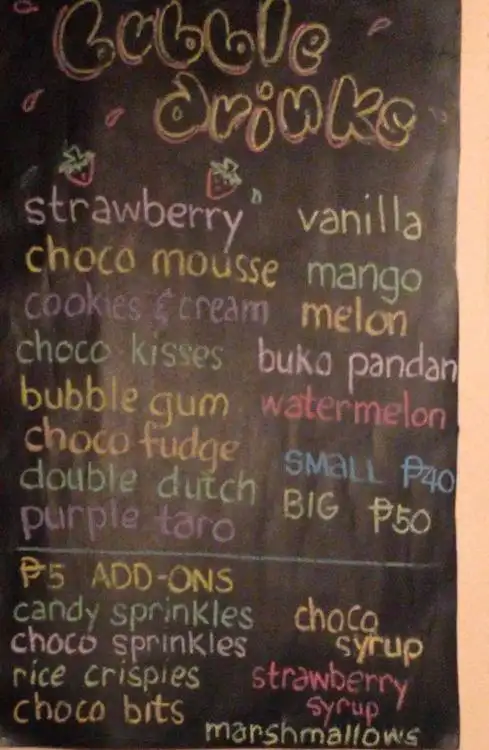 bubble
drinks
strawberry
choco mousse
cookies & cream
choco kisses
bubble gum
choco fudge
double dutch
purple taro
vanilla
mango
melon
buko pandan
watermelon
SMALL ₱40
BIG ₱50
₱5 ADD-ONS
candy sprinkles
choco sprinkles
rice crispies
choco bits
choco
syrup
strawberry
syrup
marshmallows